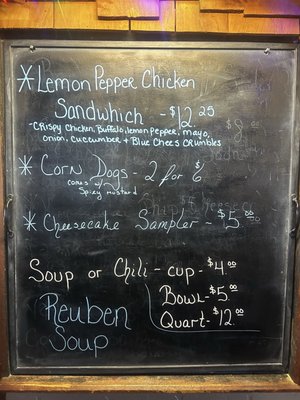 * Lemon Pepper Chicken
Sandwhich - $12.25
- Crispy Chicken, Buffalo, lemon pepper, mayo,
onion, cucumber + Blue Chees CRumbles
* Corn Dogs - 2 for $6
comes w/
Spicy Mustard
* Cheesecake Sampler - $5.00
Soup or Chili - cup - $4.00
Bowl - $5.00
Quart - $12.00
Reuben
Soup